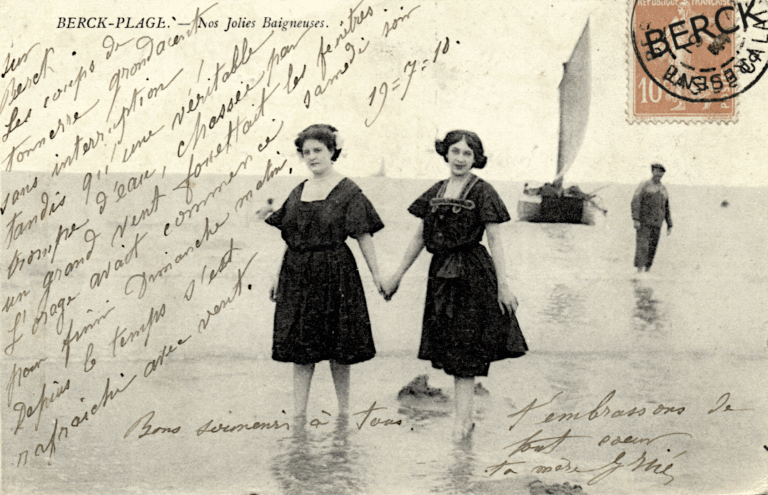 BERCK-PLAGE. — Nos Jolies Baigneuses.
sur
Berck.
Les coups de
tonnerre grondaient
sans interruption !
tandis qu'une véritable
trompe d'eau, chassée par
un grand vent fouettait les fenêtres.
L'orage avait commencé samedi soir
pour finir Dimanche matin.
Depuis le temps s'est
rafraîchi avec vent.
19=7=10.
Bons souvenirs à tous.
T'embrassons de
tout coeur
ta mère
RÉPUBLIQUE FRANÇAISE
10
BERCK